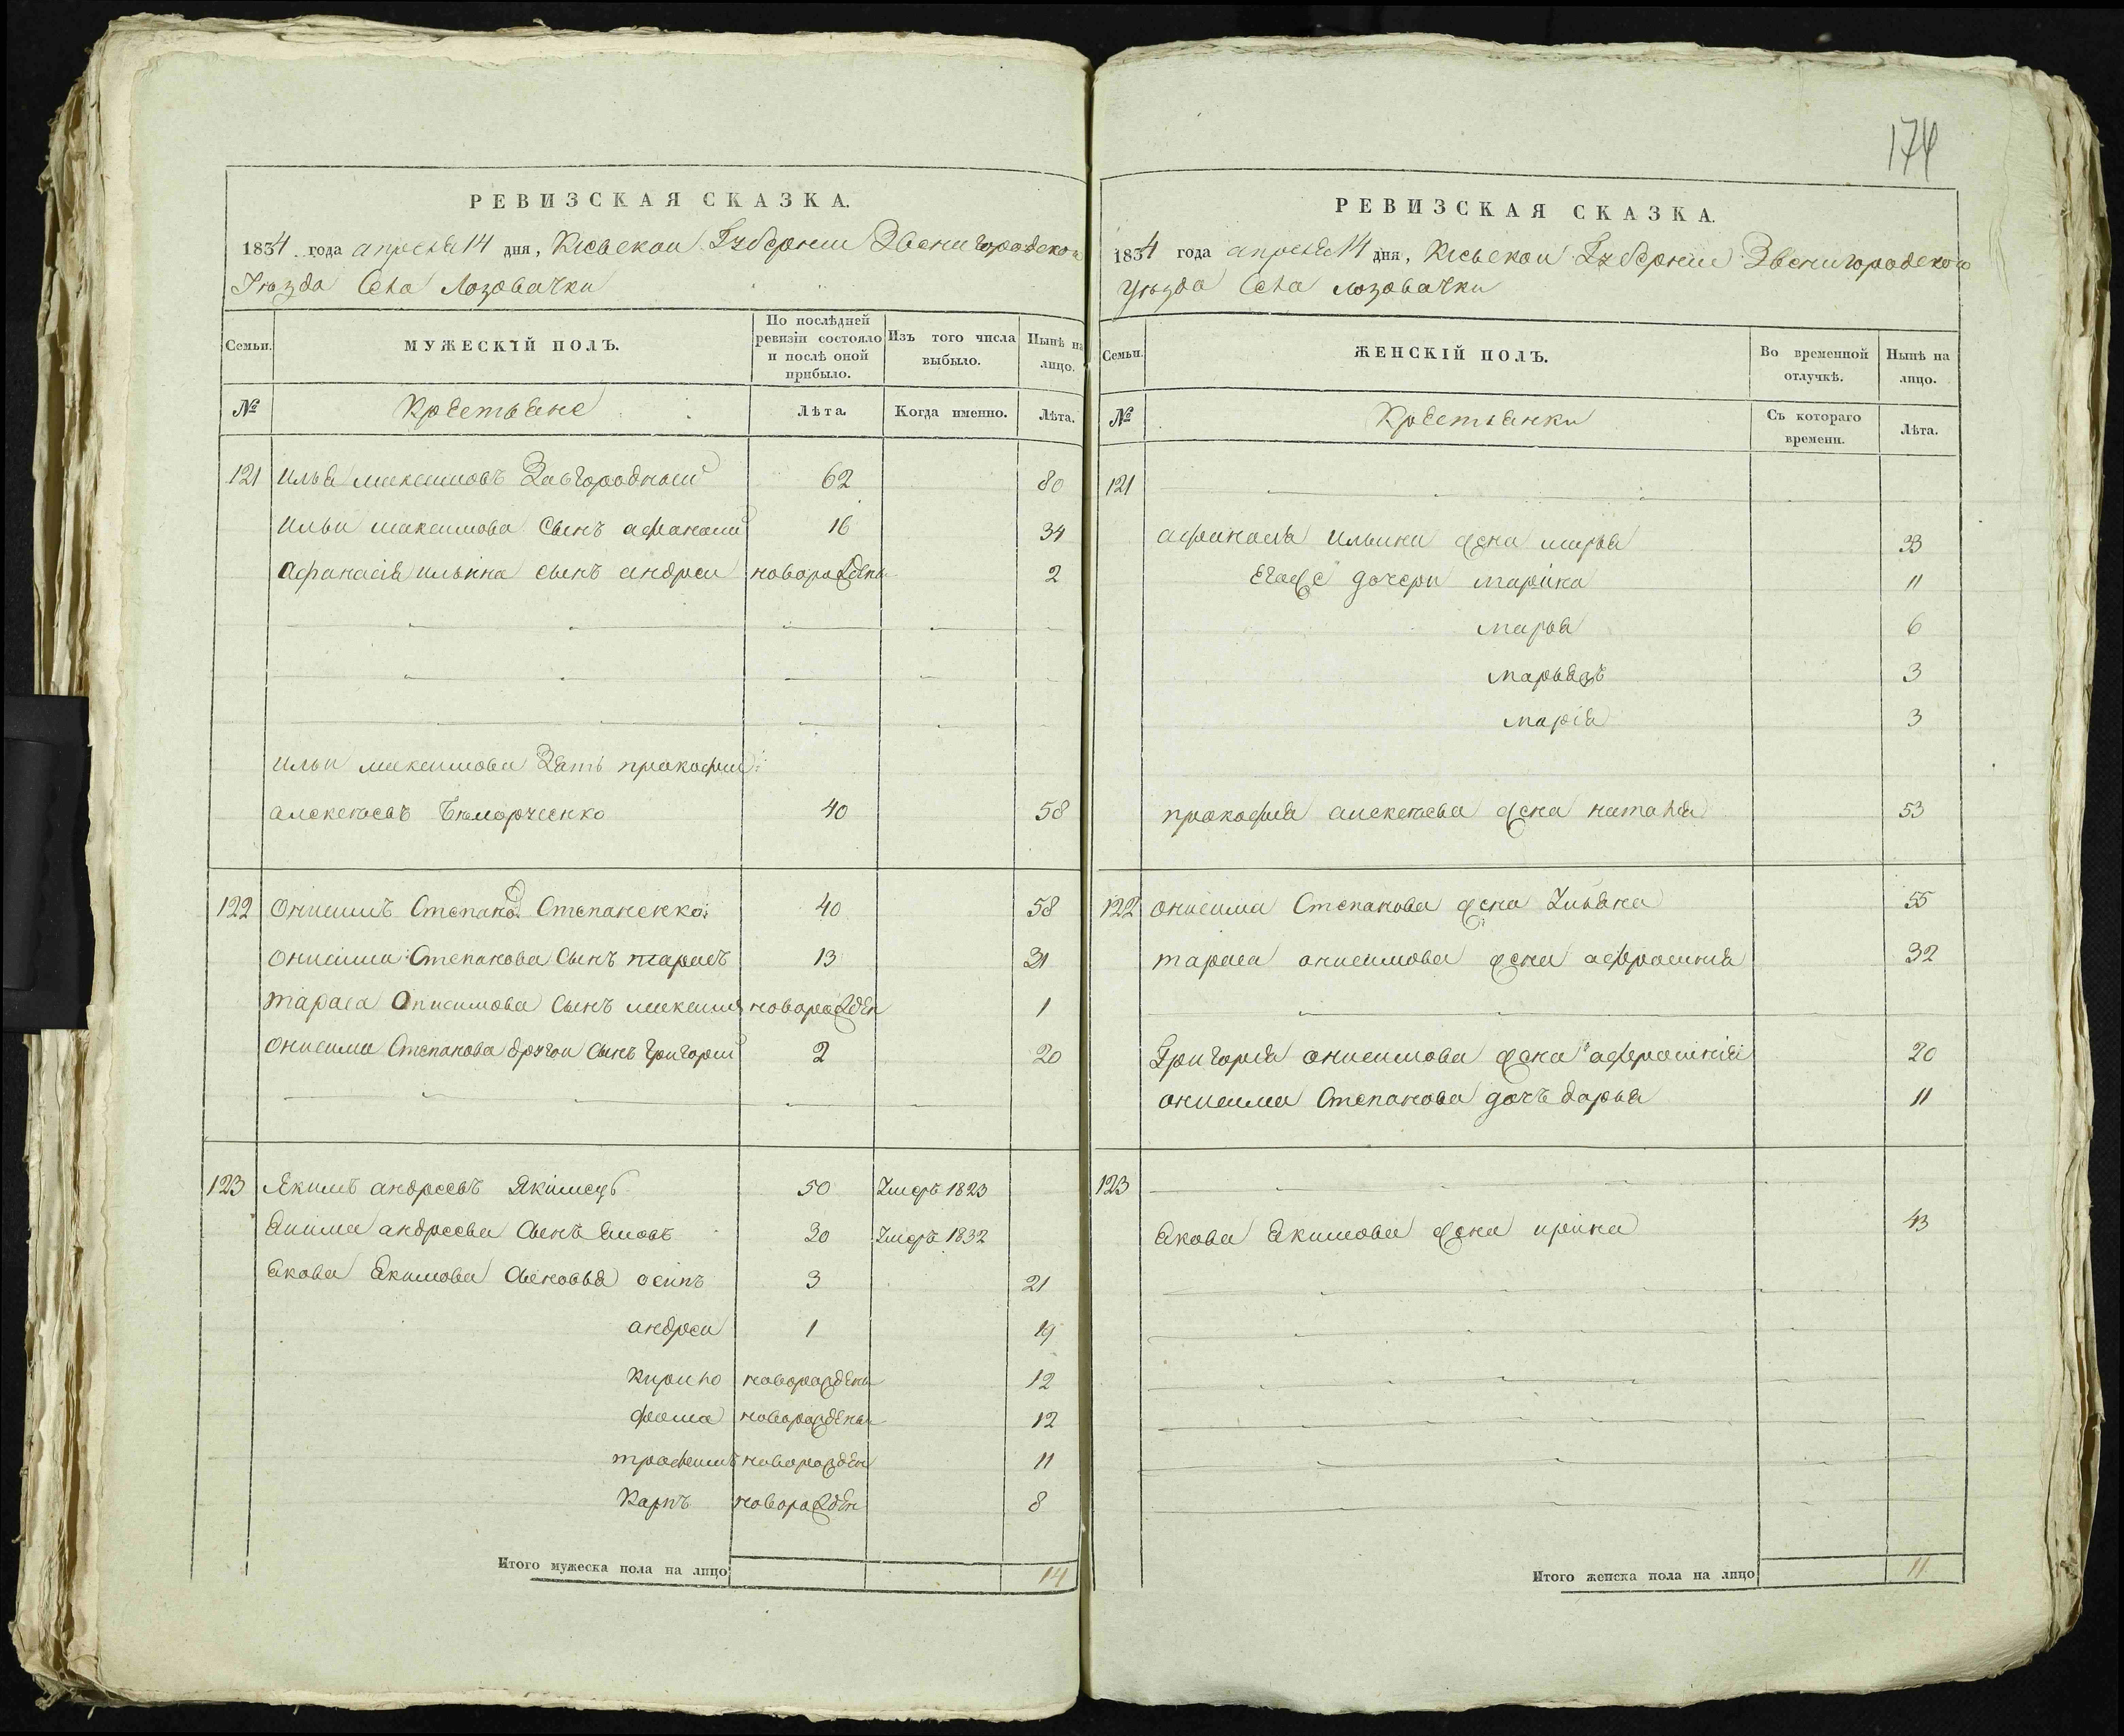 174
РЕВИЗСКАЯ СКАЗКА.
1834 года апреля 14 дня, Киевской Губернии Звенигородского
Уѣзда Села Лозоватки
Семьи. МУЖЕСКІЙ ПОЛЪ. По послѣдней ревизіи состояло и послѣ оной прибыло. Изъ того числа выбыло. Нынѣ на лицо.
№ Крестьяне Лѣта. Когда именно. Лѣта.
121 Илья максимовъ Завгородный 62 80
Ильи максимова Сынъ афанасий 16 34
Афанасія ильина сынъ андреи новорожден 2
Ильи максимова Зять прокофий
алексѣевъ 40 58
122 Онисимъ Степановъ Степаненко 40 58
Онисима Степанова Сынъ тарасъ 13 31
тараса Онисимова Сынъ максимъ новорожден 1
Онисима Степанова другои Сынъ Григорий 2 20
123 Якимъ андреевъ 50 Умеръ 1823
Якима андреева Сынъ Яковъ 30 Умеръ 1832
Якова Якимова Сыновья осипъ 3 21
андреи 1 19
Кирило новорожден 12
фома новорожден 12
трофимъ новорожден 11
Карпъ новорожден 8
Итого мужеска пола на лицо 14
РЕВИЗСКАЯ СКАЗКА.
1834 года апреля 14 дня, Киевской Губернии Звенигородского
уѣзда Села лозоватки
Семьи. ЖЕНСКІЙ ПОЛЪ. Во временной отлучкѣ. Нынѣ на лицо.
№ Крестьянки Съ котораго времени. Лѣта.
121
афанасия ильина жена марья 33
Егоже дочери марина 11
марья 6
3
марія 3
прокофия алексѣева жена наталя 53
122 онисима Степанова жена Ульяна 55
тараса онисимова жена афросиния 32
Григория онисимова жена афросиния 20
онисима Степанова дочъ дарья 11
123
Якова Якимова жена ирина 43
Итого женска пола на лицо 11